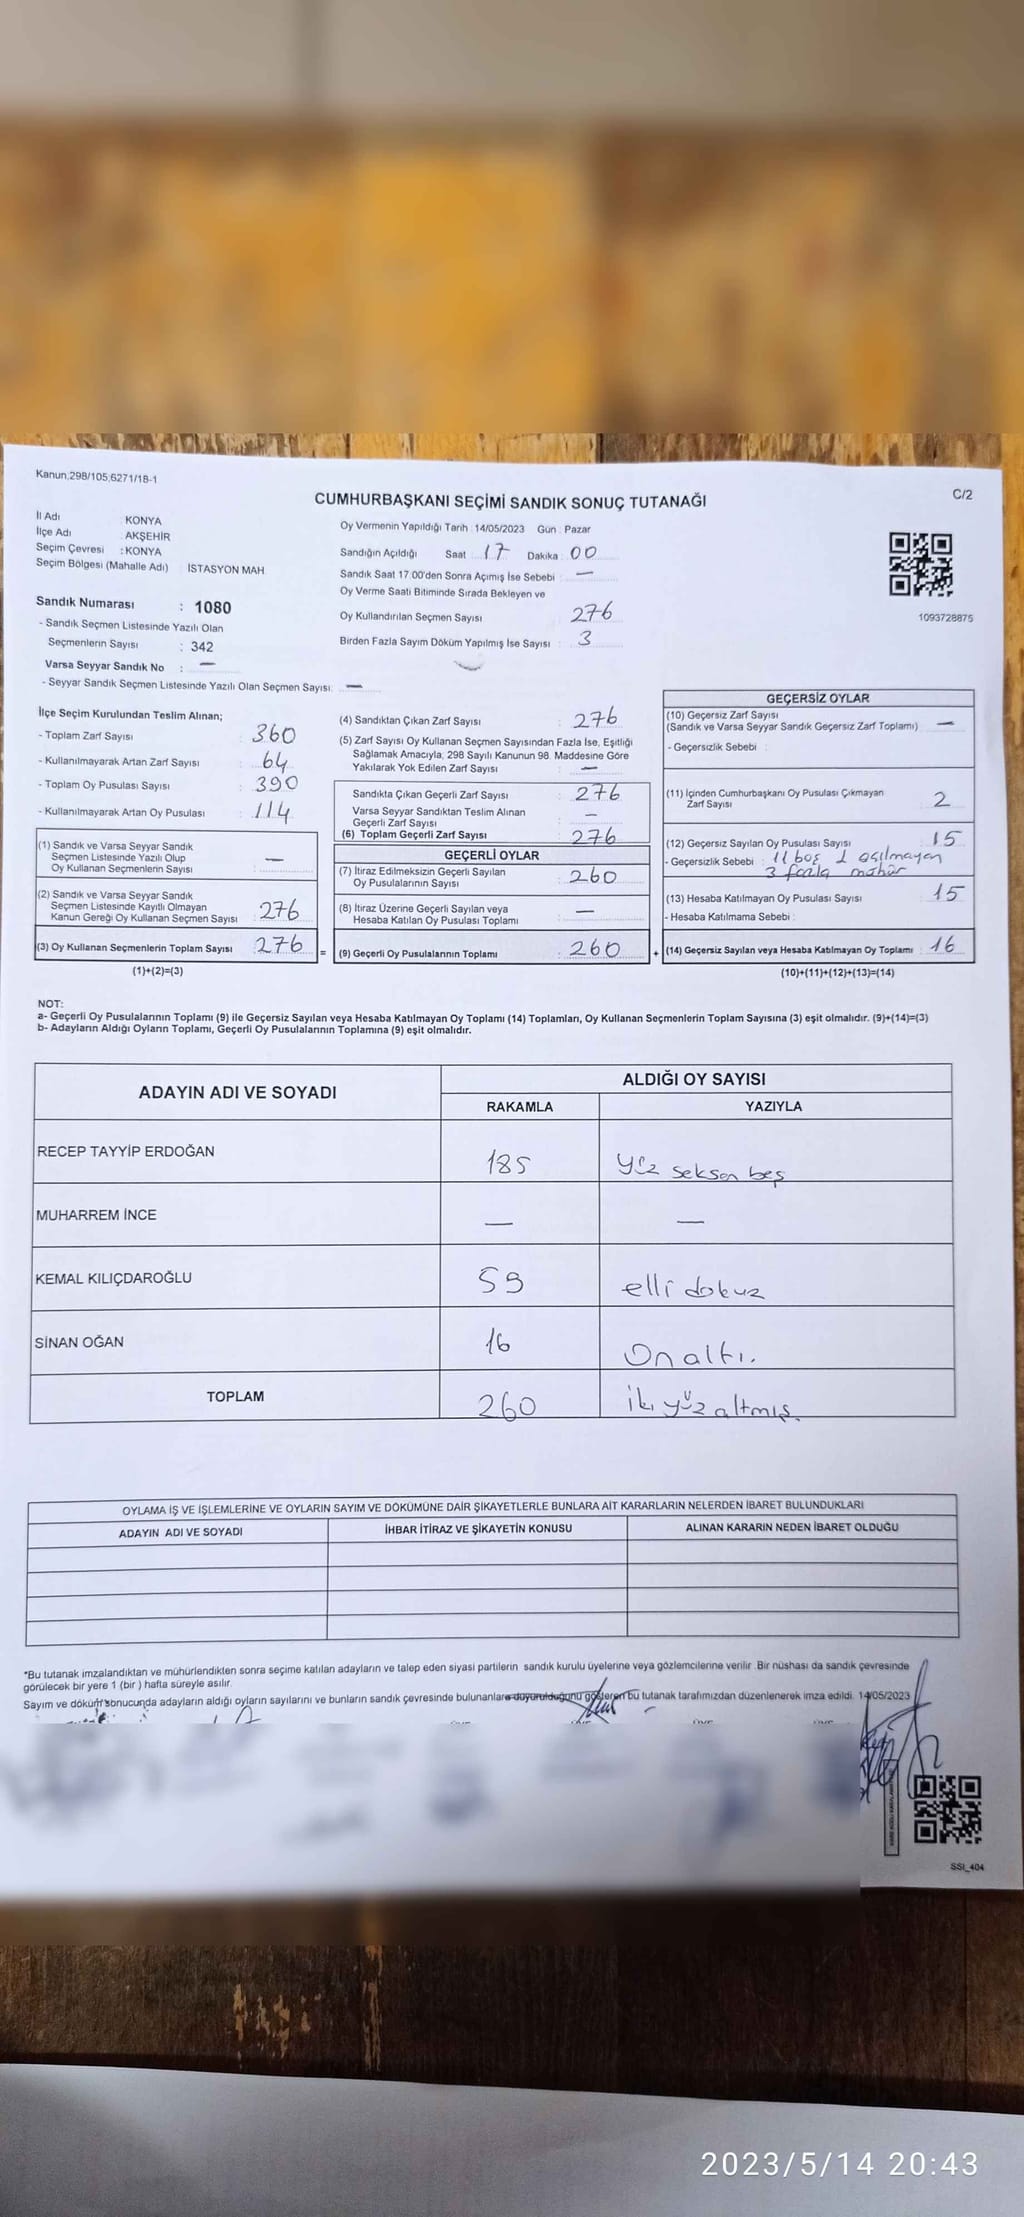 Kanun:298/105;6271/18-1
C/2
CUMHURBAŞKANI SEÇİMİ SANDIK SONUÇ TUTANAĞI
İl Adı : KONYA
İlçe Adı : AKŞEHİR
Seçim Çevresi : KONYA
Seçim Bölgesi (Mahalle Adı) İSTASYON MAH.
Sandık Numarası : 1080
- Sandık Seçmen Listesinde Yazılı Olan
Seçmenlerin Sayısı : 342
Varsa Seyyar Sandık No : —
- Seyyar Sandık Seçmen Listesinde Yazılı Olan Seçmen Sayısı: —
Oy Vermenin Yapıldığı Tarih : 14/05/2023 Gün : Pazar
Sandığın Açıldığı Saat : 17 Dakika : 00
Sandık Saat 17:00'den Sonra Açımış İse Sebebi : —
Oy Verme Saati Bitiminde Sırada Bekleyen ve
Oy Kullandırılan Seçmen Sayısı : 276
Birden Fazla Sayım Döküm Yapılmış İse Sayısı : 3
1093728875
İlçe Seçim Kurulundan Teslim Alınan;
- Toplam Zarf Sayısı : 360
- Kullanılmayarak Artan Zarf Sayısı : 64
- Toplam Oy Pusulası Sayısı : 390
- Kullanılmayarak Artan Oy Pusulası : 114
(1) Sandık ve Varsa Seyyar Sandık
Seçmen Listesinde Yazılı Olup
Oy Kullanan Seçmenlerin Sayısı : —
(2) Sandık ve Varsa Seyyar Sandık
Seçmen Listesinde Kayıtlı Olmayan
Kanun Gereği Oy Kullanan Seçmen Sayısı : 276
(3) Oy Kullanan Seçmenlerin Toplam Sayısı : 276 =
(1)+(2)=(3)
(4) Sandıktan Çıkan Zarf Sayısı : 276
(5) Zarf Sayısı Oy Kullanan Seçmen Sayısından Fazla İse, Eşitliği
Sağlamak Amacıyla; 298 Sayılı Kanunun 98. Maddesine Göre
Yakılarak Yok Edilen Zarf Sayısı : —
Sandıkta Çıkan Geçerli Zarf Sayısı : 276
Varsa Seyyar Sandıktan Teslim Alınan
Geçerli Zarf Sayısı : —
(6) Toplam Geçerli Zarf Sayısı : 276
GEÇERLİ OYLAR
(7) İtiraz Edilmeksizin Geçerli Sayılan
Oy Pusulalarının Sayısı : 260
(8) İtiraz Üzerine Geçerli Sayılan veya
Hesaba Katılan Oy Pusulası Toplamı : —
(9) Geçerli Oy Pusulalarının Toplamı : 260 +
GEÇERSİZ OYLAR
(10) Geçersiz Zarf Sayısı
(Sandık ve Varsa Seyyar Sandık Geçersiz Zarf Toplamı) : —
- Geçersizlik Sebebi :
(11) İçinden Cumhurbaşkanı Oy Pusulası Çıkmayan
Zarf Sayısı : 2
(12) Geçersiz Sayılan Oy Pusulası Sayısı : 15
- Geçersizlik Sebebi : 11 boş 1 açılmayan
3 fazla mühür
(13) Hesaba Katılmayan Oy Pusulası Sayısı : 15
- Hesaba Katılmama Sebebi :
(14) Geçersiz Sayılan veya Hesaba Katılmayan Oy Toplamı : 16
(10)+(11)+(12)+(13)=(14)
NOT:
a- Geçerli Oy Pusulalarının Toplamı (9) ile Geçersiz Sayılan veya Hesaba Katılmayan Oy Toplamı (14) Toplamları, Oy Kullanan Seçmenlerin Toplam Sayısına (3) eşit olmalıdır. (9)+(14)=(3)
b- Adayların Aldığı Oyların Toplamı, Geçerli Oy Pusulalarının Toplamına (9) eşit olmalıdır.
ADAYIN ADI VE SOYADI ALDIĞI OY SAYISI
RAKAMLA YAZIYLA
RECEP TAYYİP ERDOĞAN 185 yüz seksen beş
MUHARREM İNCE — —
KEMAL KILIÇDAROĞLU 59 elli dokuz
SİNAN OĞAN 16 On altı.
TOPLAM 260 iki yüz altmış.
OYLAMA İŞ VE İŞLEMLERİNE VE OYLARIN SAYIM VE DÖKÜMÜNE DAİR ŞİKAYETLERLE BUNLARA AİT KARARLARIN NELERDEN İBARET BULUNDUKLARI
ADAYIN ADI VE SOYADI İHBAR İTİRAZ VE ŞİKAYETİN KONUSU ALINAN KARARIN NEDEN İBARET OLDUĞU
*Bu tutanak imzalandıktan ve mühürlendikten sonra seçime katılan adayların ve talep eden siyasi partilerin sandık kurulu üyelerine veya gözlemcilerine verilir. Bir nüshası da sandık çevresinde
görülecek bir yere 1 (bir) hafta süreyle asılır.
Sayım ve döküm sonucunda adayların aldığı oyların sayılarını ve bunların sandık çevresinde bulunanlara duyurulduğunu gösteren bu tutanak tarafımızdan düzenlenerek imza edildi. 14/05/2023
SSI_404
2023/5/14 20:43